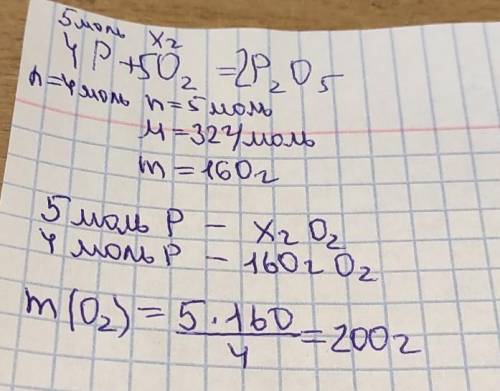 5 моль х г
4P + 5O₂ = 2P₂O₅
n = 4 моль n = 5 моль
M = 32 г/моль
m = 160 г
5 моль P – х г O₂
4 моль P – 160 г O₂
m(O₂) = 5·160/4 = 200 г